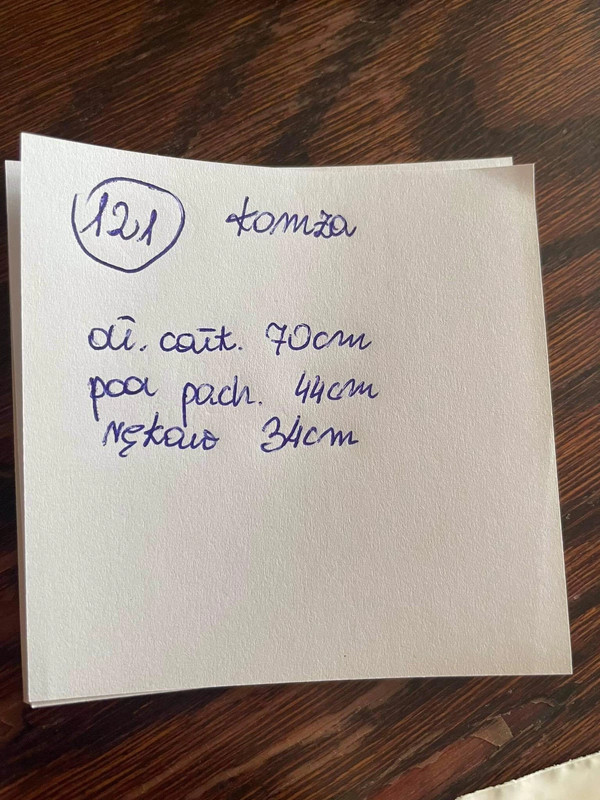 121 komża
dł. całk. 70cm
pod pach. 44cm
rękaw 34cm